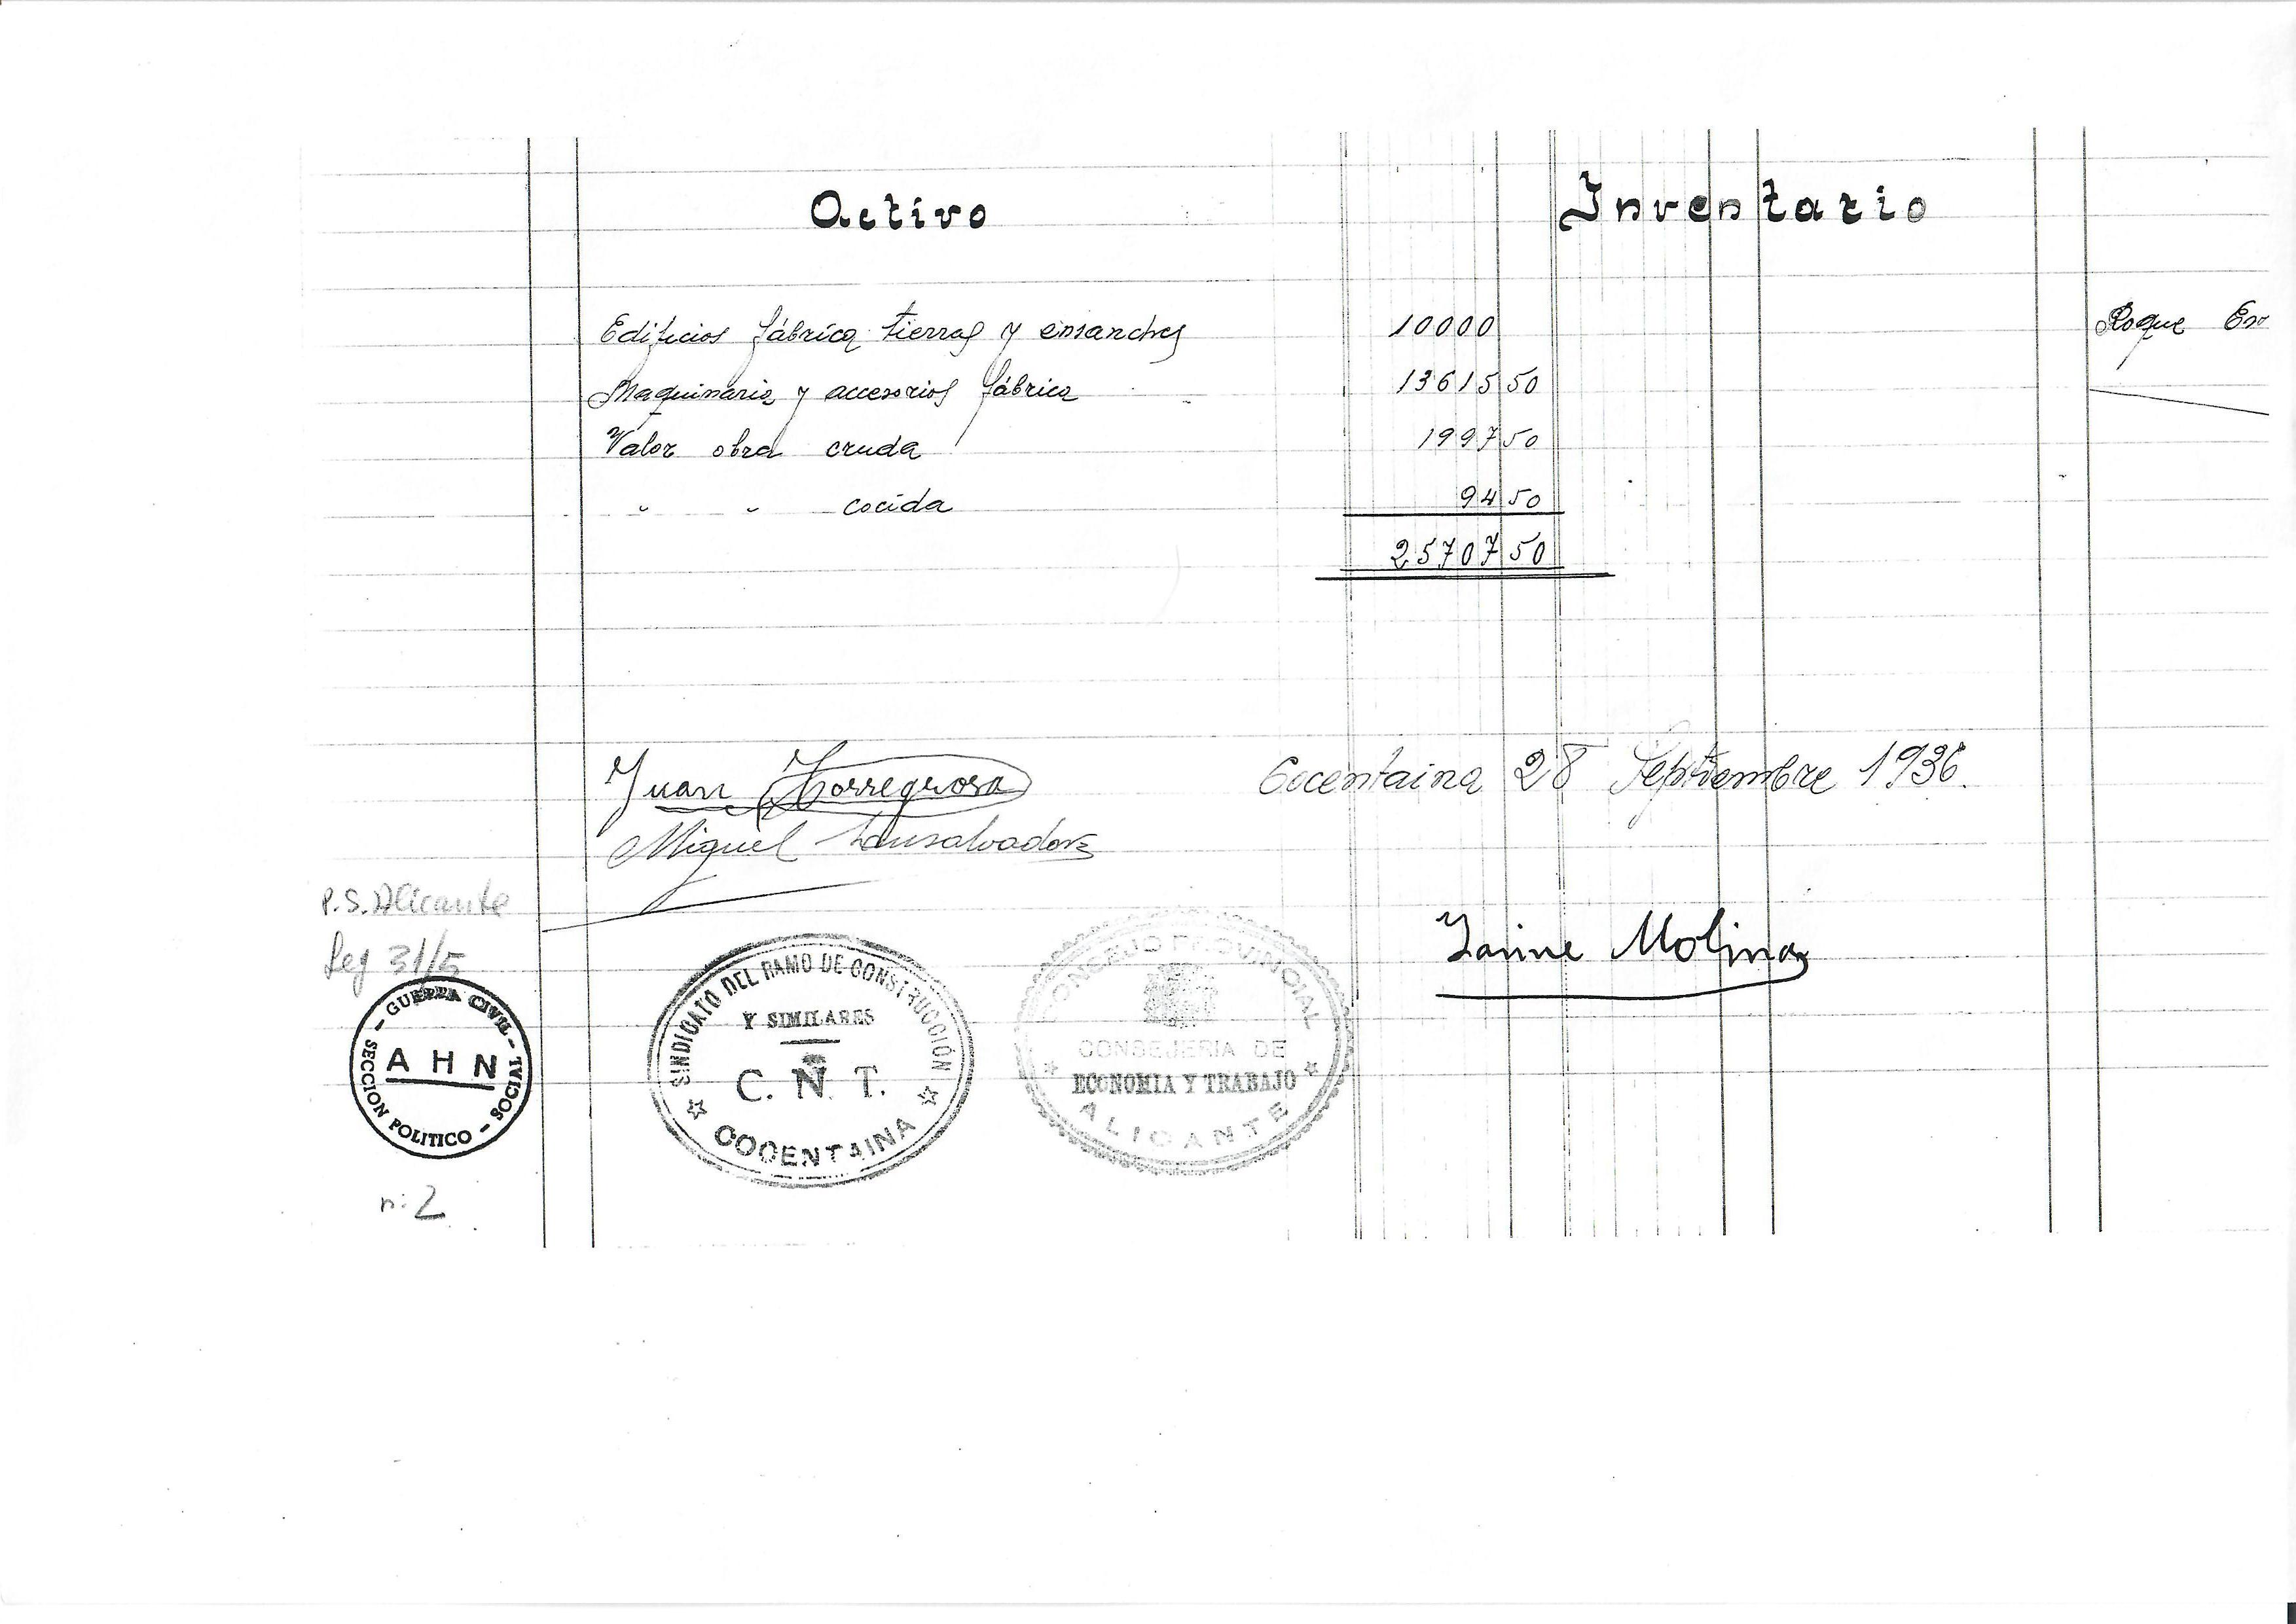 Activo Inventario
Edificios fábrica tierras y ensanches 10000
Roque
Maquinaria y accesorios fábrica 13615 50
Valor obra cruda 1997 50
" " cocida 94 50
25707 50
Juan Torregrosa
Cocentaina 28 Septiembre 1936.
Miguel
P.S. Alicante
Leg 31/5
Jaime Molina
SINDICATO DEL RAMO DE CONSTRUCCIÓN
Y SIMILARES
C. N. T.
COCENTAINA
CONSEJO PROVINCIAL
CONSEJERIA DE
ECONOMIA Y TRABAJO
ALICANTE
- GUERRA CIVIL -
A H N
SECCION POLITICO - SOCIAL
n: 2